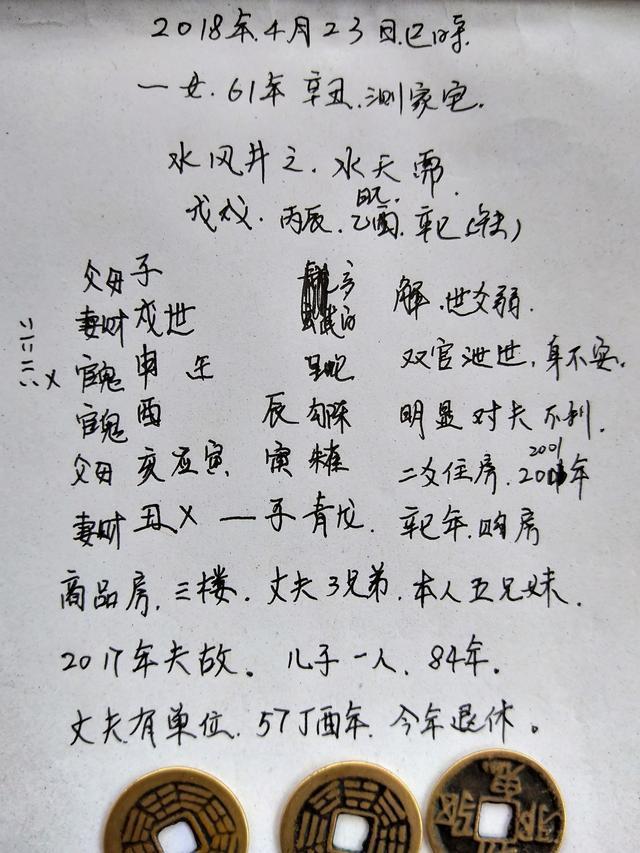 2018年.4月23日.巳时.
一女.61年 辛丑.测家宅.
水风井之.水天需.
戊戌.丙辰.乙酉.辛巳(午未)
日元.
父母子
妻财戌世 解.世爻弱.
官鬼申 午 双官泄世.身不安.
官鬼酉 辰勾陈 明显对夫不利.
父母亥应寅 寅朱雀 二爻住房.2001年
妻财丑X 一子青龙. 辛巳年.购房
商品房.三楼.丈夫3兄弟.本人五兄妹.
2017年夫故。儿子一人.84年.
丈夫有单位.57丁酉年.今年退休。